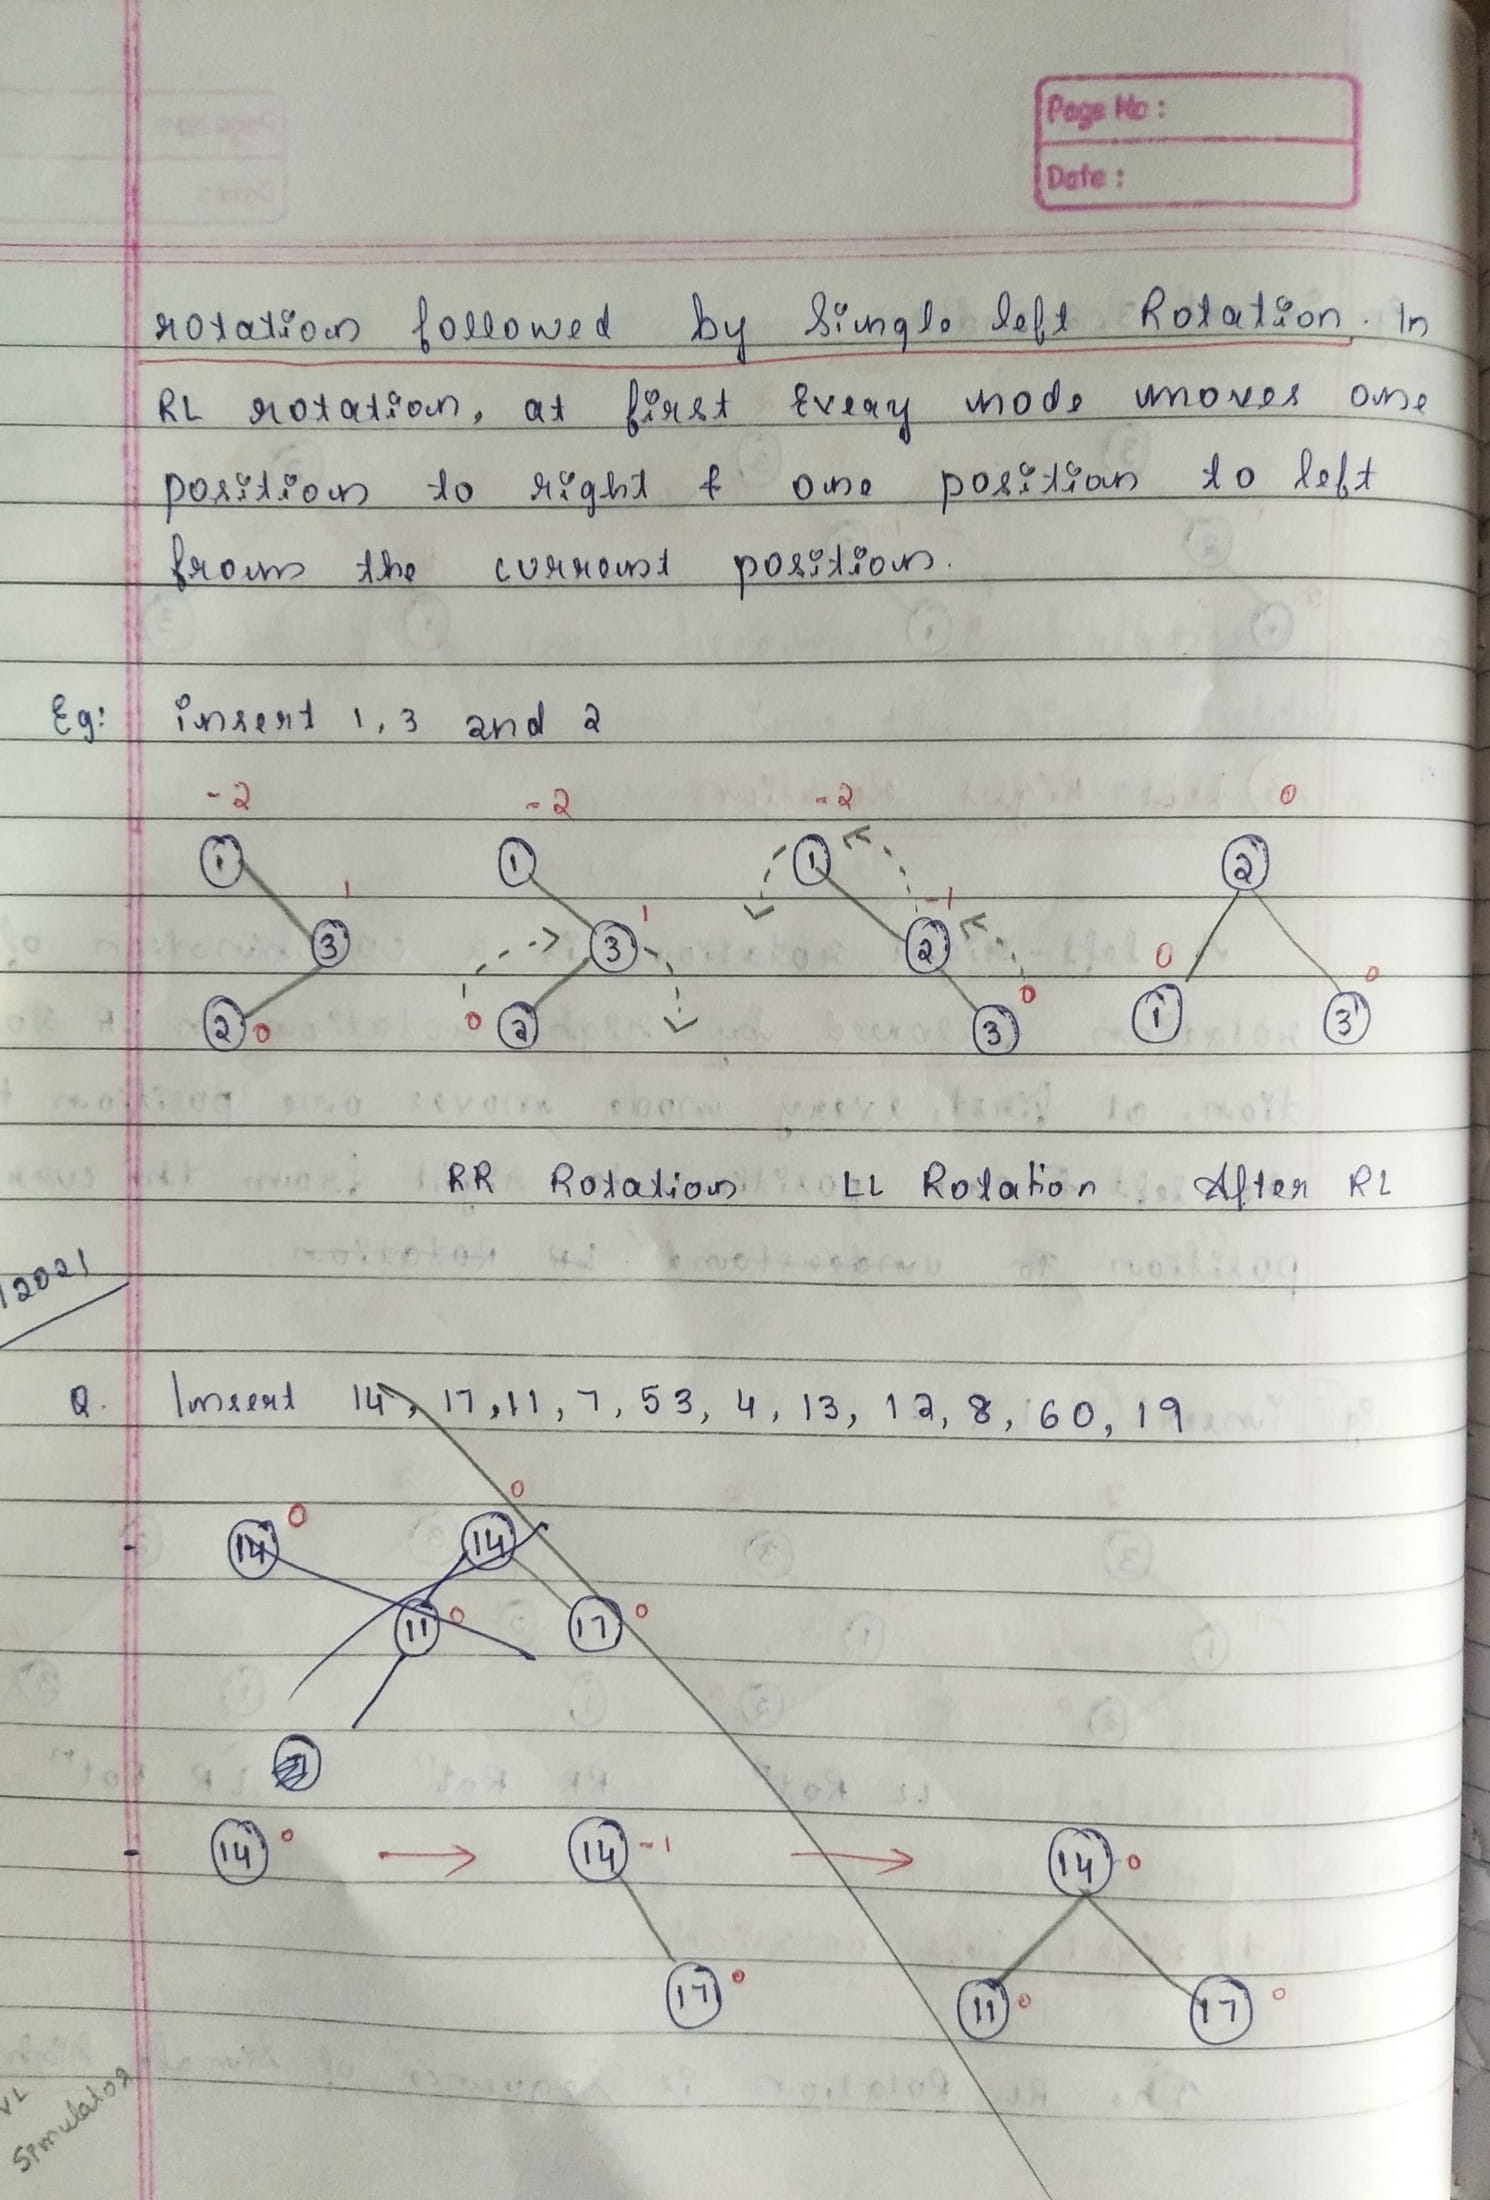 Page No :
Date :
rotation followed by Single left Rotation. In
RL rotation, at first Every node moves one
position to right & one position to left
from the current position.
Eg: insert 1, 3 and 2
-2 -2 -2 0
1 1 1 2
1 1 -1
3 3 2 0 0
2 0 0 2 3 0 1 3
RR Rotation LL Rotation After RL
/2021
Q. Insert 14, 17, 11, 7, 53, 4, 13, 12, 8, 60, 19
0 0
14 14
11 0 17 0
14 0 14 -1 14 0
17 0 11 0 17 0
VL
Simulator